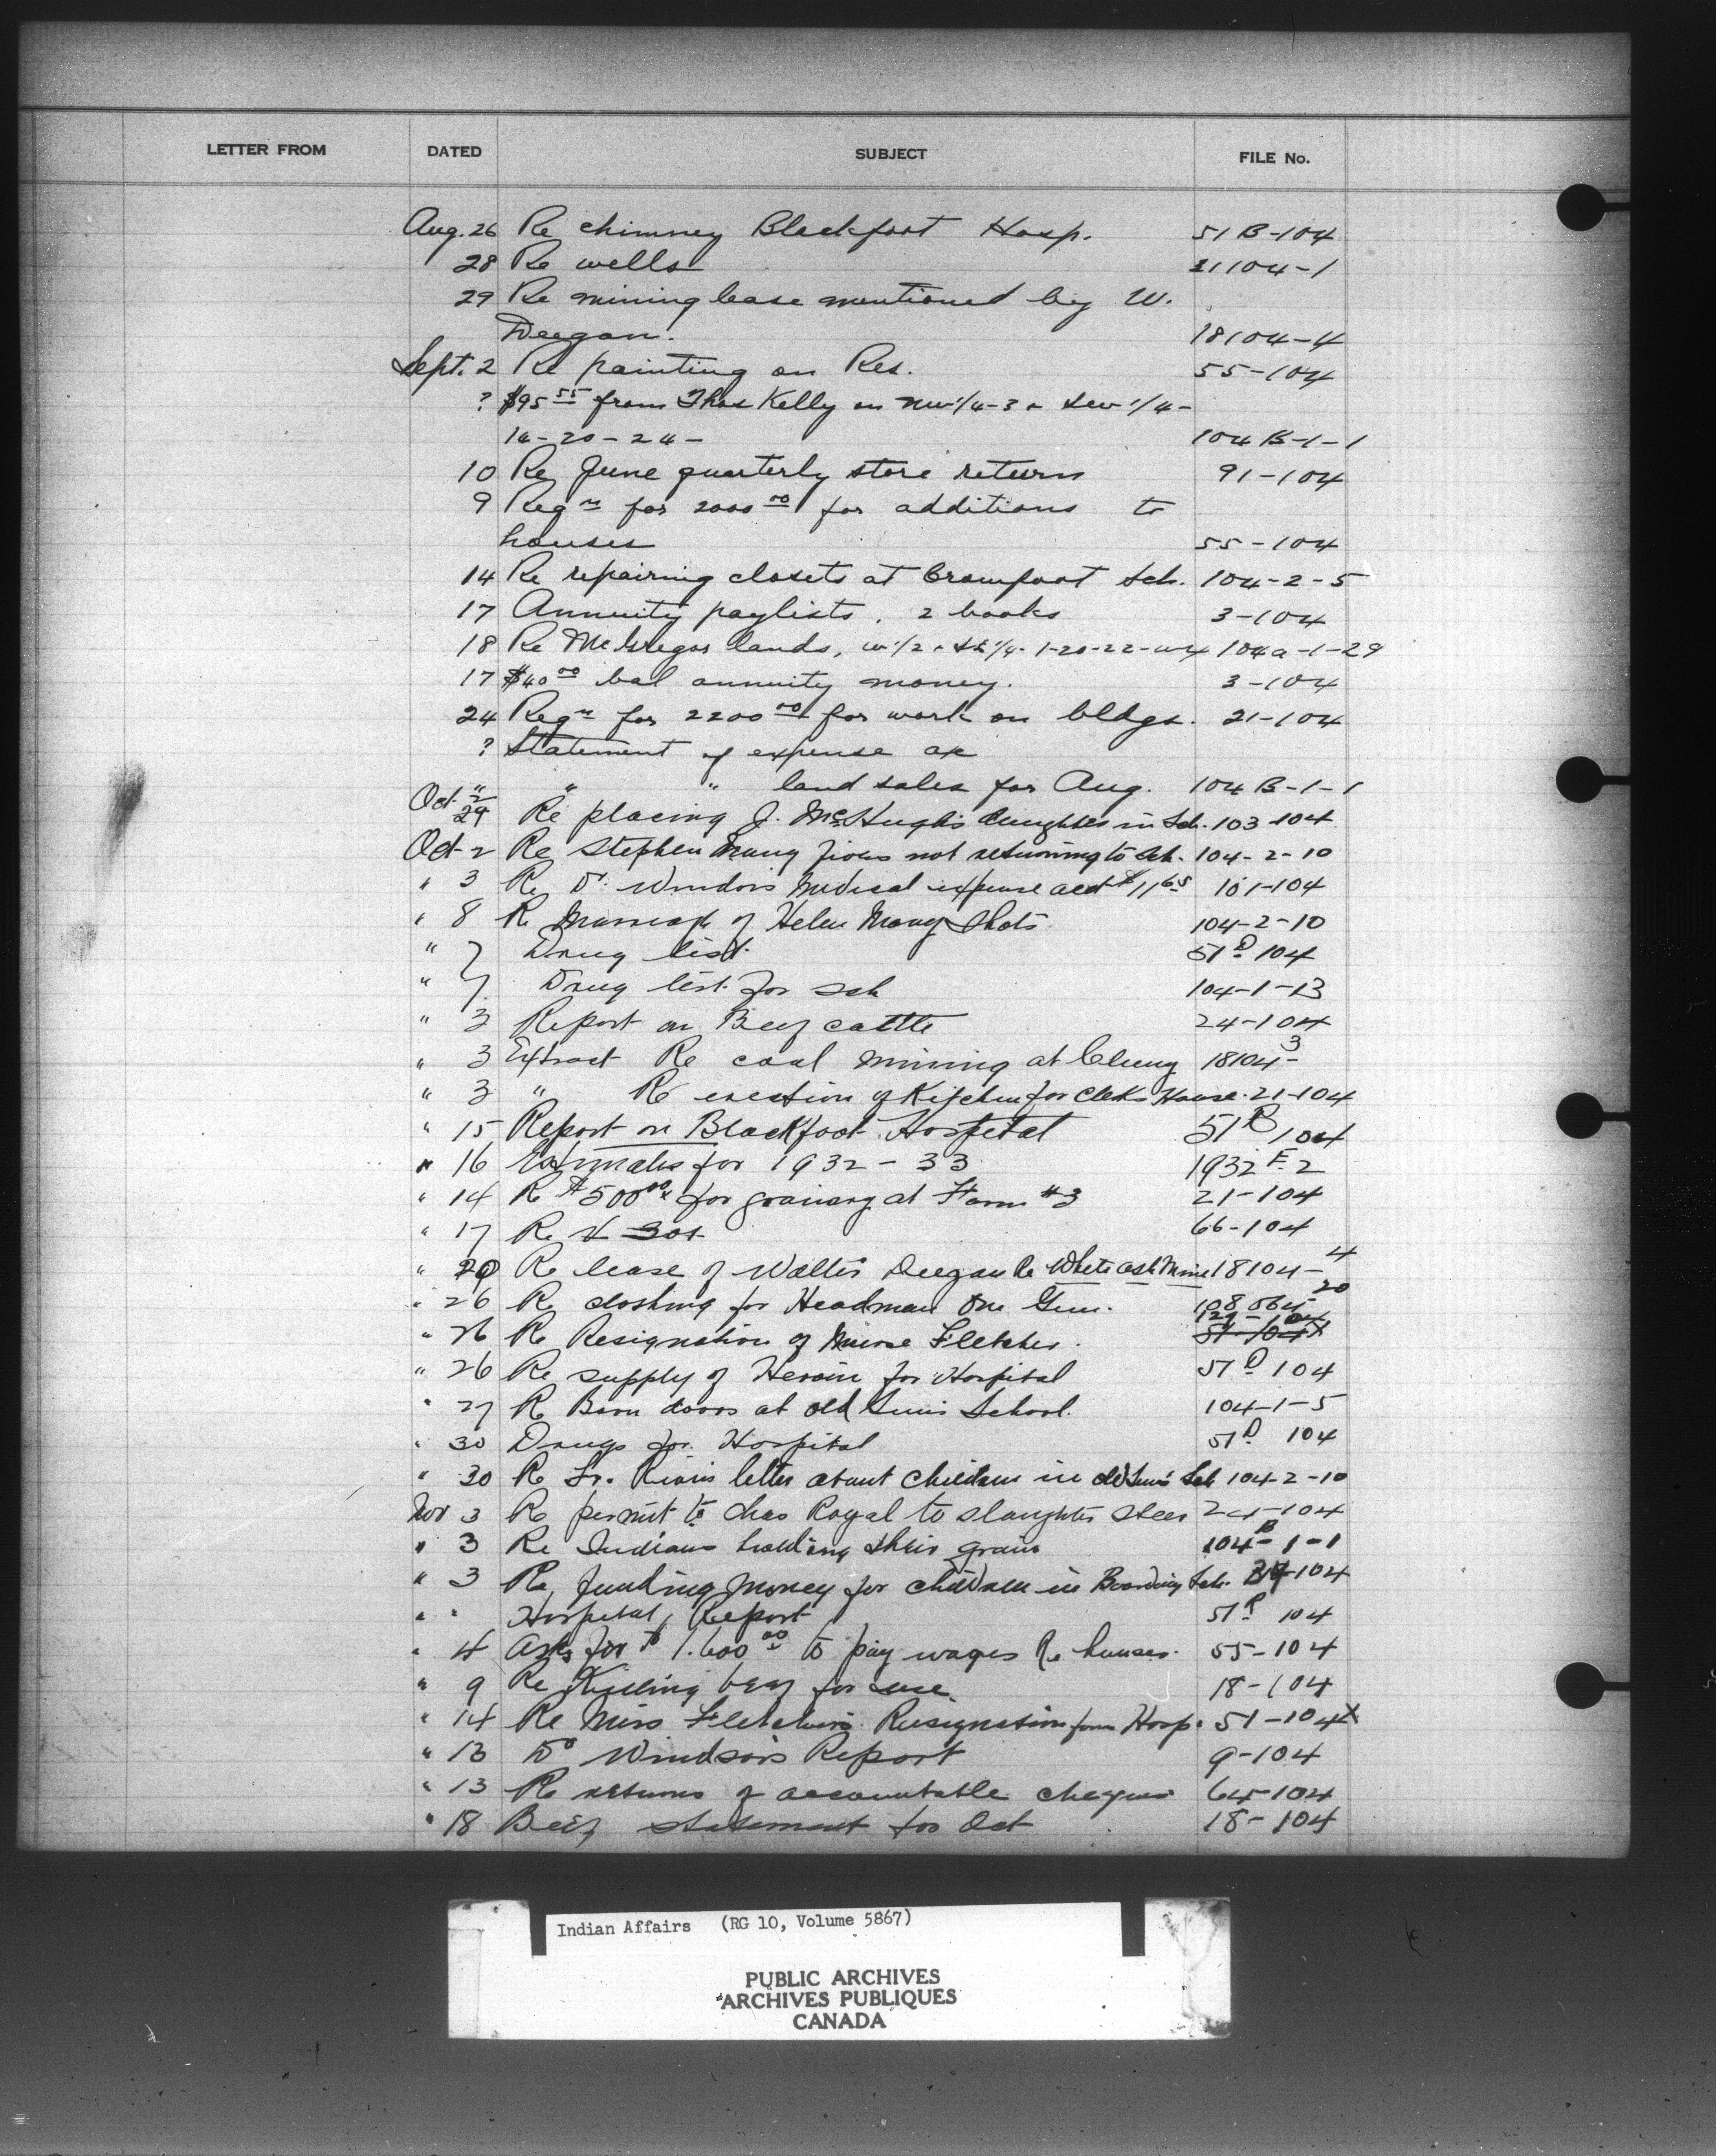 LETTER FROM DATED SUBJECT FILE No.
Aug. 26 Re chimney Blackfoot Hosp. 51 B-104
28 Re wells 21104-1
29 Re mining lease mentioned by W.
Deegan. 18104-4
Sept. 2 Re painting on Res. 55-104
? $95 55 from Thos Kelly on NW 1/4-3 & SW 1/4-
14-20-24- 104 B-1-1
10 Re June quarterly store return 91-104
9 Reqn for 2000 00 for additions to
houses 55-104
14 Re repairing closets at Crowfoot Sch. 104-2-5
17 Annuity paylists, 2 books 3-104
18 Re McGregor lands, W 1/2 & SE 1/4-1-20-22-W4 104a-1-29
17 $40 00 bal annuity money. 3-104
24 Reqn for 2200 00 for work on bldgs. 21-104
? Statement of expense ac
" " " land sales for Aug. 104 B-1-1
Oct 2
29 Re placing J. McHugh's daughter in Sch. 103-104
Oct-2 Re Stephen Many Fires not returning to Sch. 104-2-10
" 3 Re Dr. Windsors Medical expense acct $11 65 101-104
" 8 Re Marriage of Helen Many Shots 104-2-10
" 7 Drug list. 51 D 104
" 7. Drug list for sch 104-1-13
" 3 Report on Beef cattle 24-104
" 3 Extract Re coal mining at Cluny 18104-3
" 3 " Re erection of Kitchen for Clerks House. 21-104
" 15 Report on Blackfoot Hospital 51 R 104
" 16 Estimates for 1932-33 1932 E. 2
" 14 Re $500 00 for granary at Farm #3 21-104
" 17 Re 66-104
" 20 Re lease of Walter Deegan Re White ash Mine 18104-4
" 26 Re clothing for Headman One Gun. 20
" 26 Re Resignation of Nurse Fletcher. 51-104X
" 26 Re supply of Heroin for Hospital 51 D 104
" 27 Re Barn doors at Old Suns School. 104-1-5
" 30 Drugs for Hospital 51 D 104
" 30 Re Fr. Riou's letter about Children in Old Suns Sch 104-2-10
Nov 3 Re permit to Chas Royal to slaughter steer 24-104
" 3 Re Indians hauling their grain 104-B-1-1
" 3 Re funding money for children in Boarding Sch. 104
" " Hospital Report 51 R 104
" 4 Asks for $1.600 00 to pay wages Re houses. 55-104
" 9 Re Killing beef for use. 18-104
" 14 Re Miss Fletcher's Resignation from Hosp. 51-104X
" 13 Dr Windsors Report 9-104
" 13 Re returns of accountable cheques 64-104
" 18 Beef statement for Oct 18-104
Indian Affairs (RG 10, Volume 5867)
PUBLIC ARCHIVES
ARCHIVES PUBLIQUES
CANADA